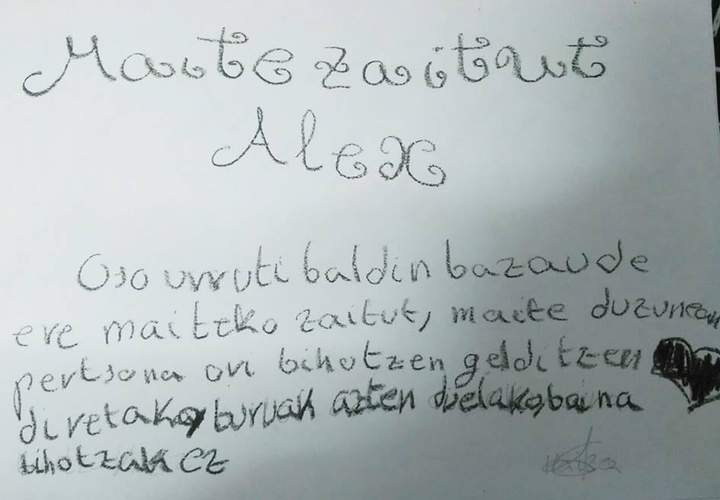 Maite zaitut
Alex
Oso urruti baldin bazaude
ere maiteko zaitut, maite duzunean
pertsona ori bihotzen gelditzen
diretako, buruak azten duelako, baina
bihotzak ez